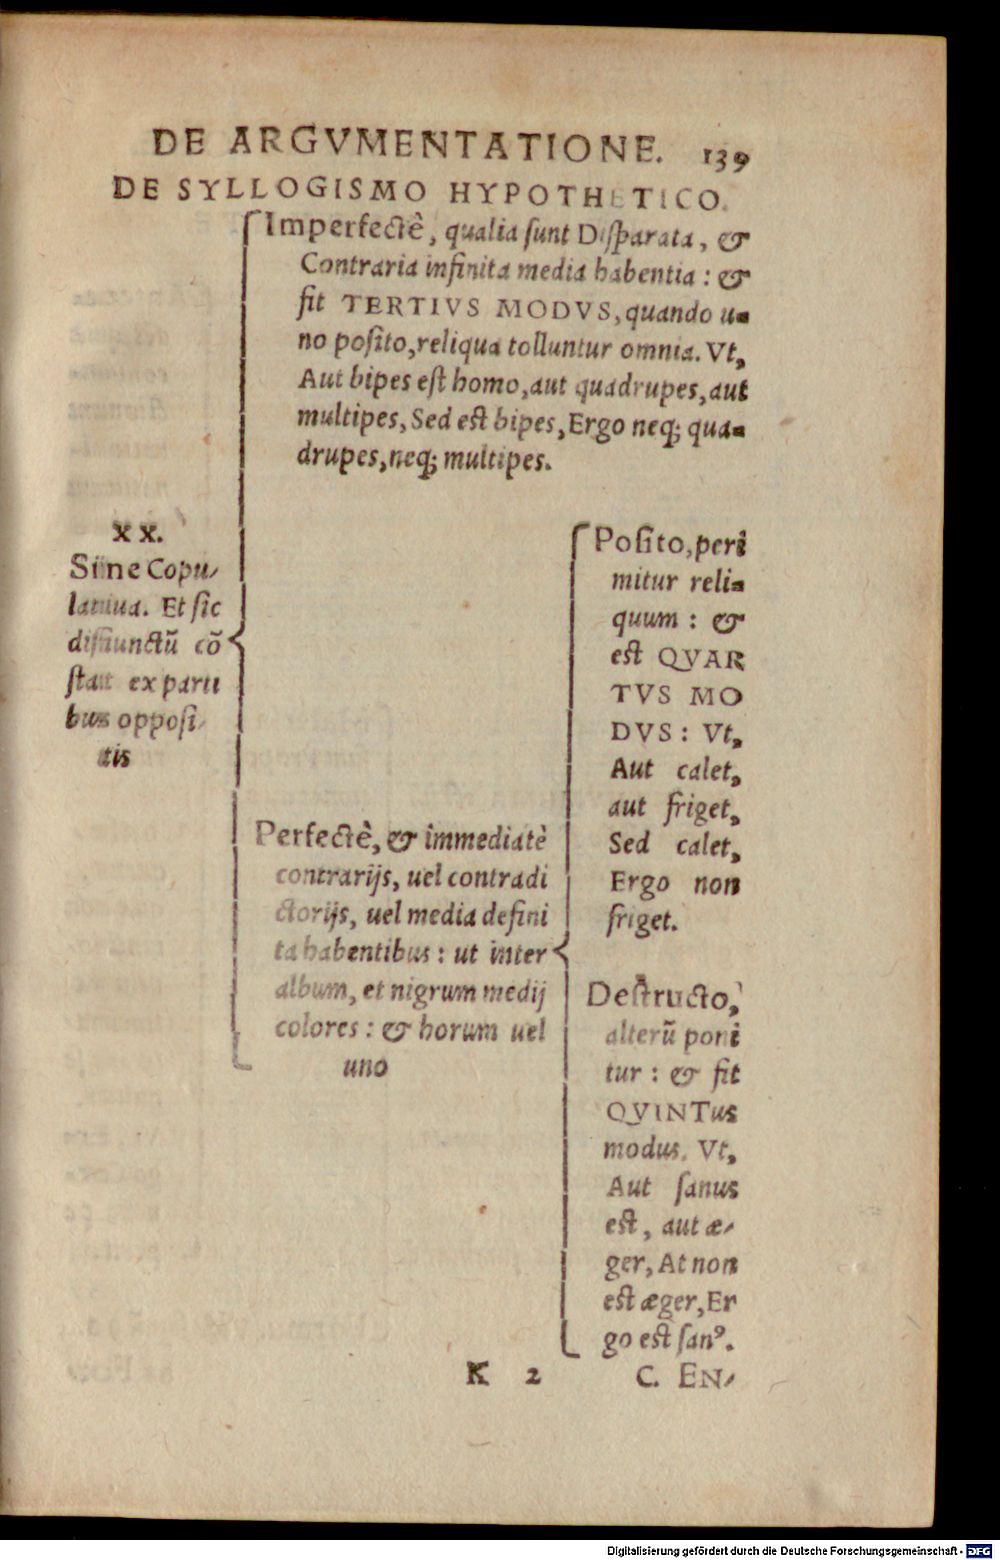 DE ARGVMENTATIONE. 139
DE SYLLOGISMO HYPOTHETICO.
Imperfectè, qualia sunt Disparata, &
Contraria infinita media habentia: &
fit TERTIVS MODVS, quando u-
no posito, reliqua tolluntur omnia. Vt,
Aut bipes est homo, aut quadrupes, aut
multipes, Sed est bipes, Ergo neq; qua-
drupes, neq; multipes.
XX.
Sine Copu-
latiua. Et sic
disiunctũ cõ
stat ex parti
bus opposi-
tis
Perfectè, & immediatè
contrarijs, uel contradi
ctorijs, uel media defini
ta habentibus: ut inter
album, et nigrum medij
colores: & horum uel
uno
Posito, peri
mitur reli-
quum: &
est QVAR
TVS MO
DVS: Vt,
Aut calet,
aut friget,
Sed calet,
Ergo non
friget.
Destructo,
alterũ poni
tur: & fit
QVINTus
modus. Vt,
Aut sanus
est, aut æ-
ger, At non
est æger, Er
go est sanꝰ.
K 2 C. EN-
Digitalisierung gefördert durch die Deutsche Forschungsgemeinschaft - DFG